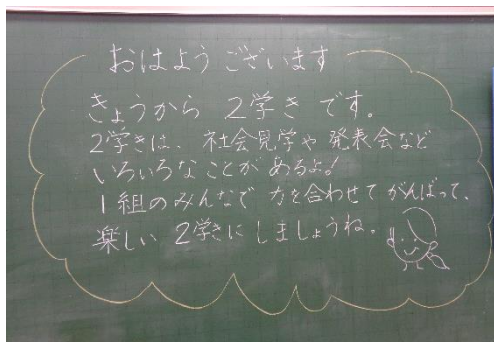 おはようございます
きょうから 2学き です。
2学きは、社会見学や 発表会など
いろいろなことが あるよ!
1組のみんなで 力を合わせて がんばって、
楽しい 2学きに しましょうね。